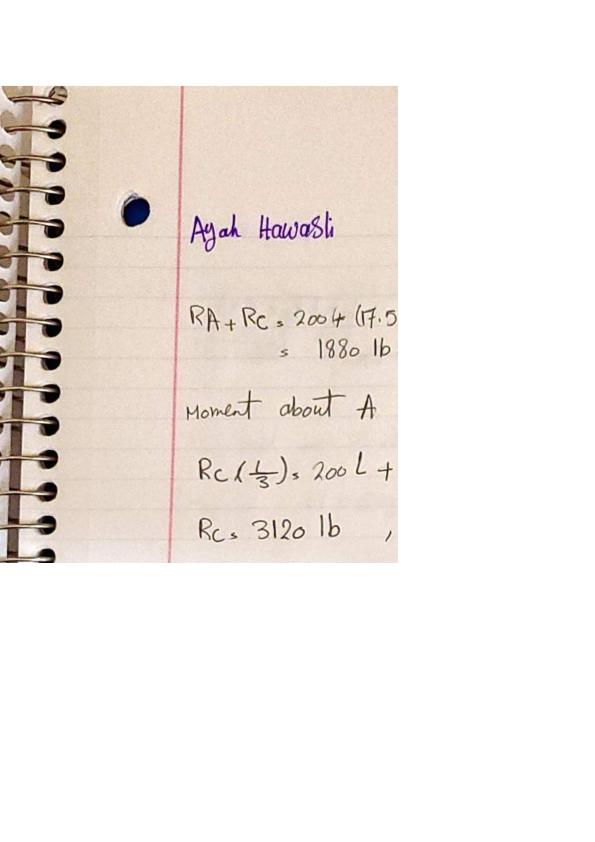 Ayah Hawasli
RA + RC = 200 + (17.5
= 1880 lb
Moment about A
RC (L/3) = 200 L +
RC = 3120 lb ,